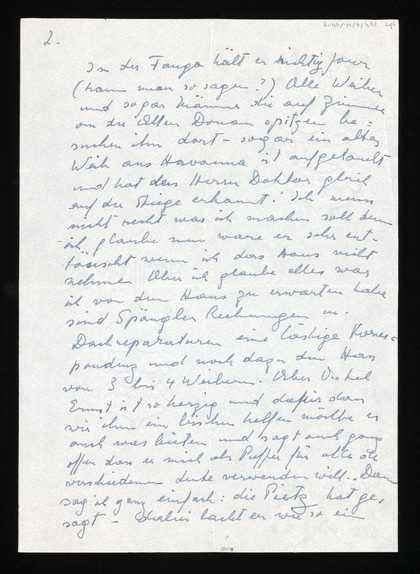 2.
In der Fanga hält er richtig jour
(kann man so sagen?) Alle Weiber
und sogar Männer die auf Zimmer
an der Alten Donau spitzen be=
suchen ihn dort – sogar ein altes
Weib aus Havanna ist aufgetaucht
und hat den Herrn Doktor gleich
auf der Stiege erkannt! Ich weiss
nicht recht was ich machen soll denn
ich glaube nun wäre er sehr ent=
täuscht wenn ich das Haus nicht
nehme. Aber ich glaube alles was
ich von dem Haus zu erwarten habe
sind Spängler Rechnungen u.
Dachreparaturen eine lästige Korres=
pondenz und noch dazu den Hass
von 3 bis 4 Weibern. Aber Onkel
Ernst ist so herzig und dafür dass
wir ihm ein bischen helfen möchte er
auch was bieten und sagt auch ganz
offen dass er mich als Puffer für alle die
verschiedenen Leute verwenden will. Dann
sag ich ganz einfach: die Pietz hat ge,
sagt – dabei lacht er wie so ein